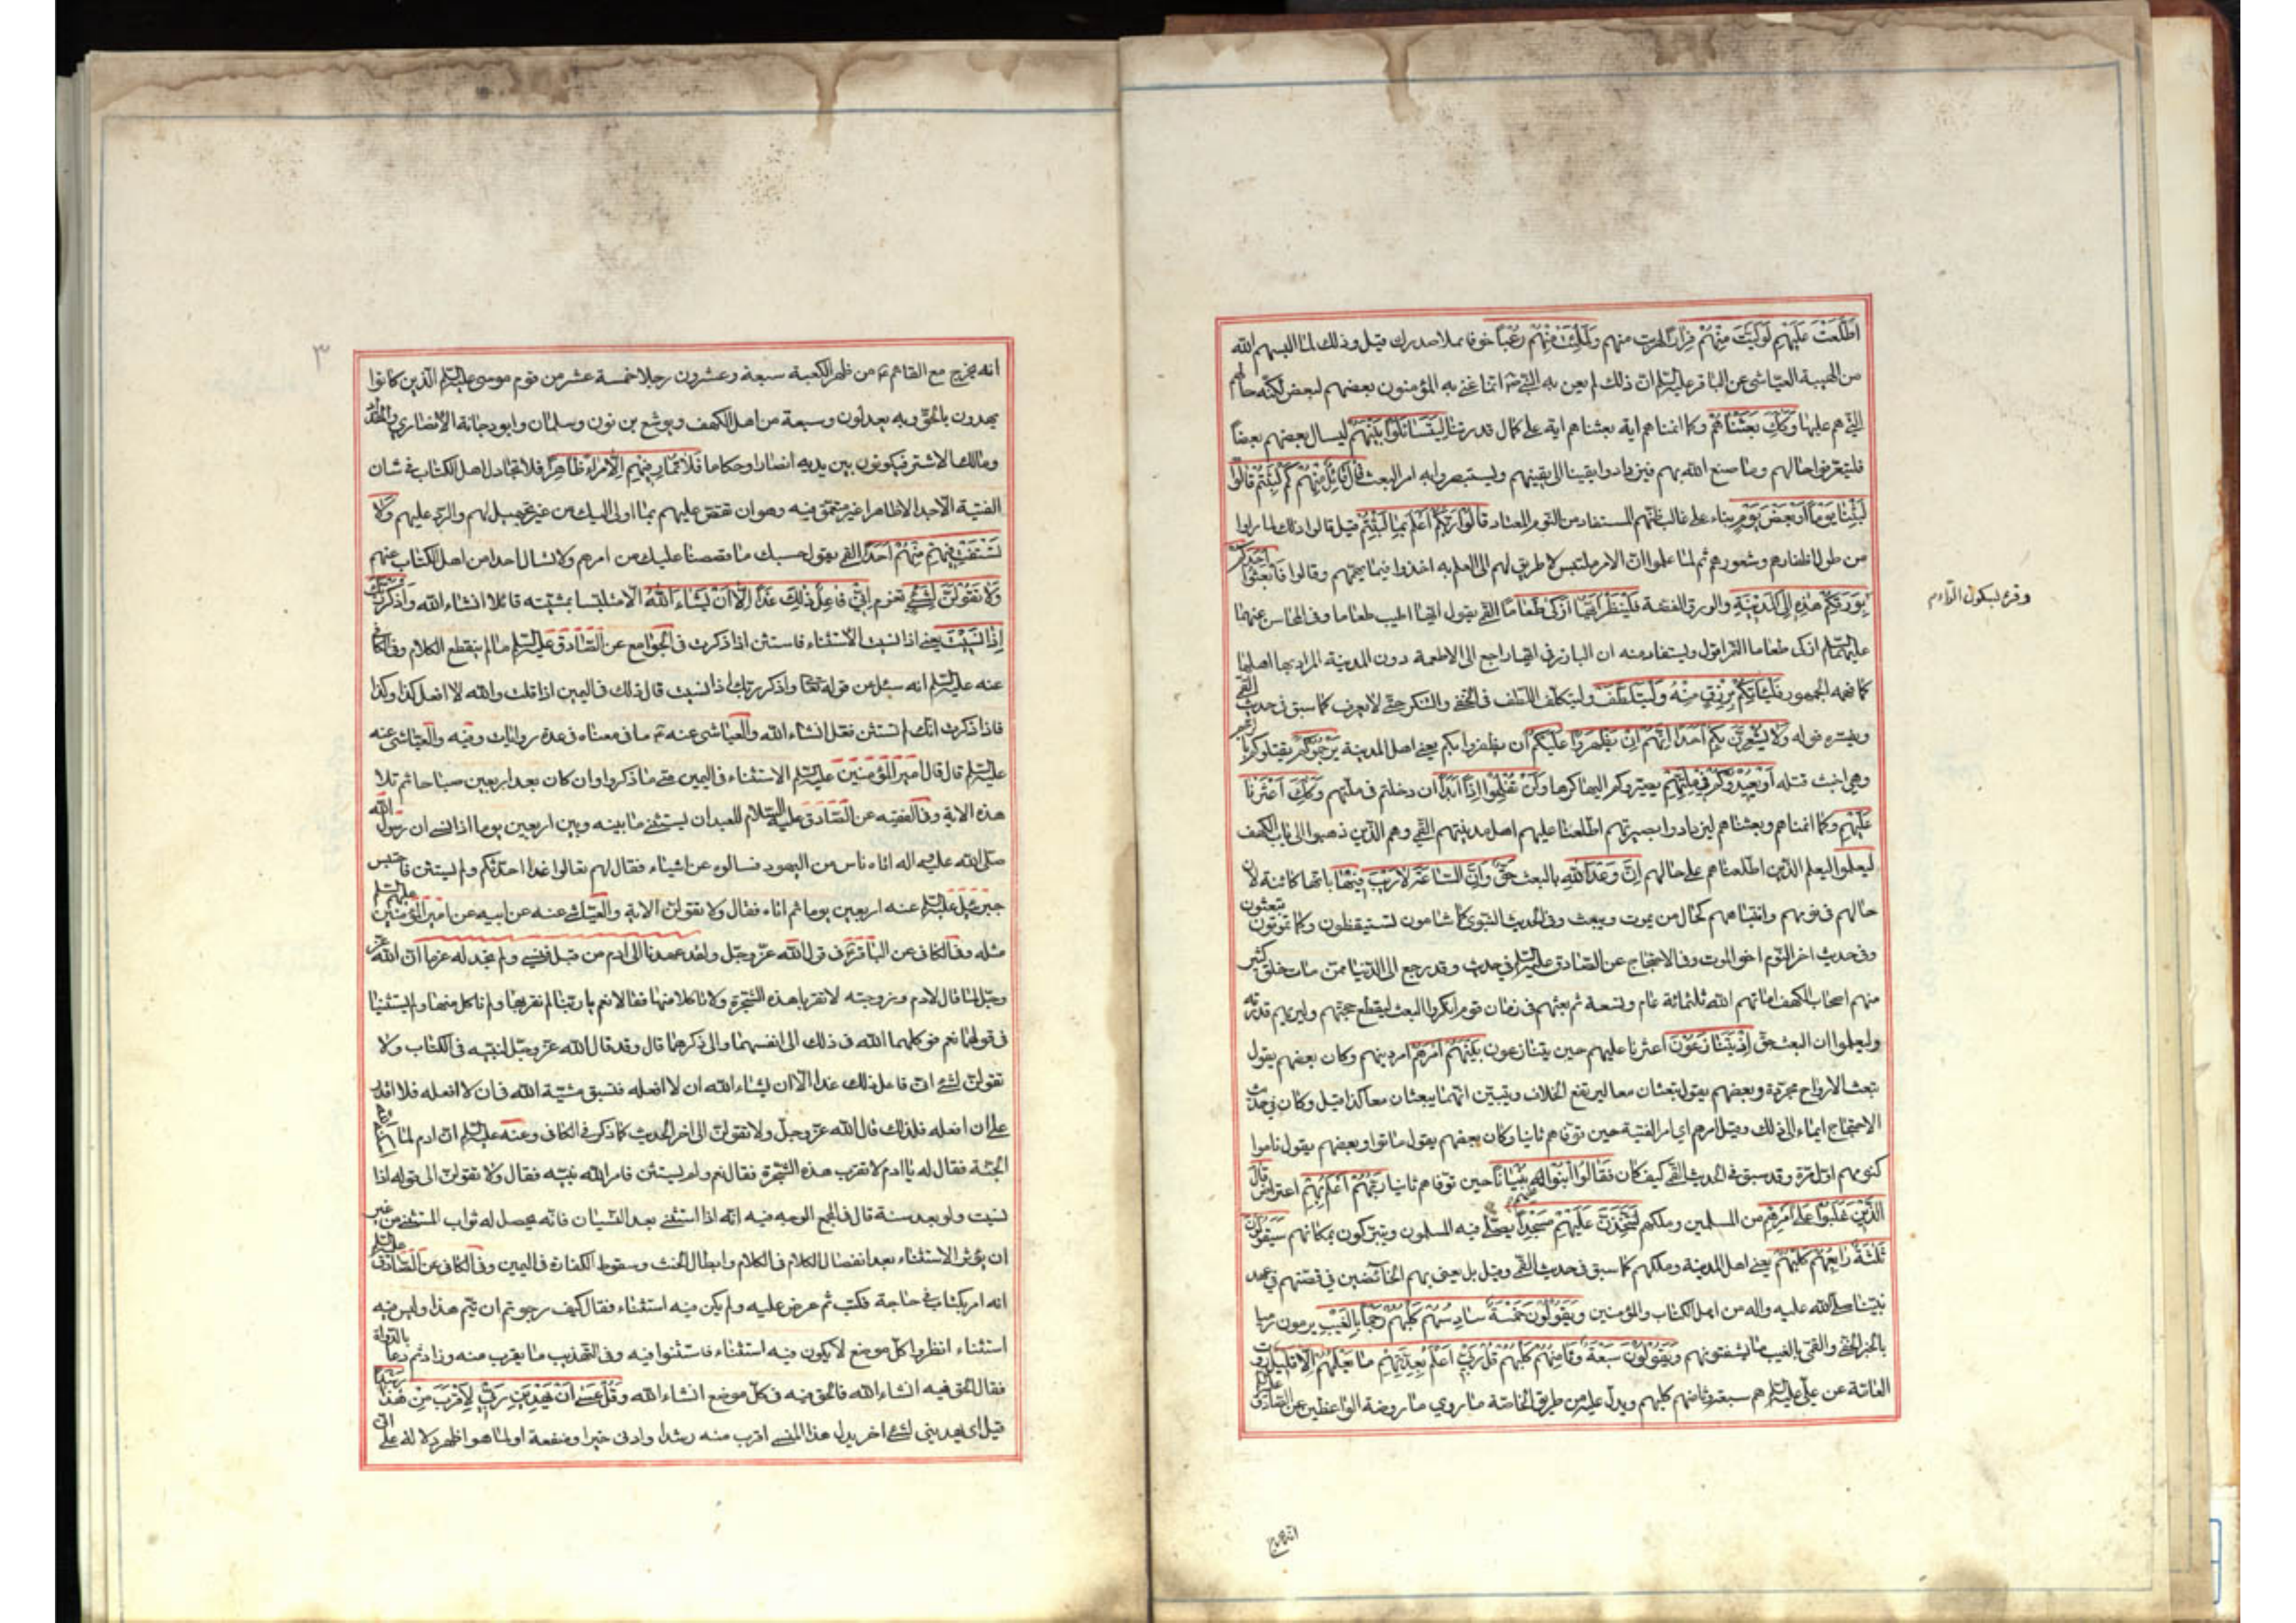 اطَّلَعْتَ عَلَيْهِمْ لَوَلَّيْتَ مِنْهُمْ فِرَارًا لهربت منهم وَلَمُلِئْتَ مِنْهُمْ رُعْبًا خوفا يملا صدرك قيل وذلك لما البسهم الله
من الهيبة العياشي عن الباقر عليه السلم ان ذلك لم يعن به النبي ص انما عني به المؤمنون بعضهم لبعض لكنه حالهم
التي هم عليها وَكَذلِكَ بَعَثْنَاهُمْ وكما انمناهم اية بعثناهم اية على كمال قدرتنا لِيَتَسَائَلُوا بَيْنَهُمْ ليسال بعضهم بعضا
فليتعرفوا حالهم وما صنع الله بهم فيزدادوا يقينا الى يقينهم وليستبصروا به امر البعث قَالَ قَائِلٌ مِنْهُمْ كَمْ لَبِثْتُمْ قَالُوا
لَبِثْنَا يَوْمًا أَوْ بَعْضَ يَوْمٍ بناء على غالب ظنهم المستفاد من النوم المعتاد قَالُوا رَبُّكُمْ أَعْلَمُ بِمَا لَبِثْتُمْ قيل قالوا ذلك لما راوا
من طول اظفارهم وشعورهم ثم لما علموا ان الامر ملتبس لا طريق لهم الى العلم به اخذوا فيما يهمهم وقالوا فَابْعَثُوا أَحَدَكُمْ
بِوَرِقِكُمْ هذِهِ إِلَى الْمَدِينَةِ والورق الفضة فَلْيَنْظُرْ أَيُّهَا أَزْكى طَعَامًا القمي يقول ايها اطيب طعاما وفي المحاسن عنهما
وقرء بسكون الراء م
عليهما السلم ازكى طعاما التمر اقول ويستفاد منه ان البارز في ايها راجع الى الاطعمة دون المدينة المراد بها اهلها
كما فهمه الجمهور فَلْيَأْتِكُمْ بِرِزْقٍ مِنْهُ وَلْيَتَلَطَّفْ وليتكلف اللطف في التخفي والتنكر حتى لا يعرف كما سبق في حديث القمي
ويفسره قوله وَلَا يُشْعِرَنَّ بِكُمْ أَحَدًا إِنَّهُمْ إِنْ يَظْهَرُوا عَلَيْكُمْ ان يظفروا بكم يعني اهل المدينة يَرْجُمُوكُمْ يقتلوكم بالرجم
وهي اخبث قتله أَوْ يُعِيدُوكُمْ فِي مِلَّتِهِمْ يصيروكم اليها كرها وَلَنْ تُفْلِحُوا إِذًا أَبَدًا ان دخلتم في ملتهم وَكَذلِكَ أَعْثَرْنَا
عَلَيْهِمْ وكما انمناهم وبعثناهم ليزدادوا بصيرتهم اطلعنا عليهم اهل مدينتهم القمي وهم الذين ذهبوا الى باب الكهف
لِيَعْلَمُوا ليعلم الذين اطلعناهم على حالهم إِنَّ وَعْدَ اللهِ بالبعث حَقٌّ وَأَنَّ السَّاعَةَ لَا رَيْبَ فِيهَا بانها كائنة لان
حالهم في نومهم وانتباههم كحال من يموت ويبعث وفي الحديث النبوي كما تنامون تستيقظون وكما تموتون تبعثون
وفي حديث اخر النوم اخو الموت وفي الاحتجاج عن الصادق عليه السلم في حديث وقد رجع الى الدنيا ممن مات خلق كثير
منهم اصحاب الكهف اماتهم الله ثلثمائة عام وتسعة ثم بعثهم في زمان قوم انكروا البعث ليقطع حجتهم وليريهم قدرته
وليعلموا ان البعث حق إِذْ يَتَنَازَعُونَ اعثرنا عليهم حين يتنازعون بَيْنَهُمْ أَمْرَهُمْ امر دينهم وكان بعضهم يقول
تبعث الارواح مجردة وبعضهم يقول يبعثان معا ليرتفع الخلاف ويتبين انهما يبعثان معا كذا قيل وكان في حديث
الاحتجاج ايماء الى ذلك وقيل امرهم اي امر الفتية حين توفاهم ثانيا وكان بعضهم يقول ماتوا وبعضهم يقول ناموا
كنومهم اول مرة وقد سبق في الحديث القمي كيف كان فَقَالُوا ابْنُوا عَلَيْهِمْ بُنْيَانًا حين توفاهم ثانيا رَبُّهُمْ أَعْلَمُ بِهِمْ اعتراض قَالَ
الَّذِينَ غَلَبُوا عَلى أَمْرِهِمْ من المسلمين وملكهم لَنَتَّخِذَنَّ عَلَيْهِمْ مَسْجِدًا يصلي فيه المسلمون ويتبركون بمكانهم سَيَقُولُونَ
ثَلثَةٌ رَابِعُهُمْ كَلْبُهُمْ يعني اهل المدينة وملكهم كما سبق في حديث القمي وقيل بل يعني بهم الخائضين في قصتهم في عهد
نبينا صلى الله عليه واله من اهل الكتاب والمؤمنين وَيَقُولُونَ خَمْسَةٌ سَادِسُهُمْ كَلْبُهُمْ رَجْمًا بِالْغَيْبِ يرمون رميا
بالخبر الخفي والقمي بالغيب ما يستفتونهم وَيَقُولُونَ سَبْعَةٌ وَثَامِنُهُمْ كَلْبُهُمْ قُلْ رَبِّي أَعْلَمُ بِعِدَّتِهِمْ مَا يَعْلَمُهُمْ إِلَّا قَلِيلٌ روت
العامة عن علي عليه السلم هم سبعة وثامنهم كلبهم ويدل عليه من طريق الخاصة ما روي ما روضة الواعظين عن الصادق عليه السلم
انه يخرج
٣
انه يخرج مع القائم ع من ظهر الكعبة سبعة وعشرون رجلا خمسة عشر من قوم موسى عليه السلم الذين كانوا
يهدون بالحق وبه يعدلون وسبعة من اهل الكهف ويوشع بن نون وسلمان وابو دجانة الانصاري والمقداد
ومالك الاشتر فيكونون بين يديه انصارا وحكاما فَلَا تُمَارِ فِيهِمْ إِلَّا مِرَاءً ظَاهِرًا فلا تجادل اهل الكتاب في شان
الفتية الا جدالا ظاهرا غير متعمق فيه وهو ان تقص عليهم بما اوحي اليك من غير تجهيل لهم والرد عليهم وَلَا
تَسْتَفْتِ فِيهِمْ مِنْهُمْ أَحَدًا القمي يقول حسبك ما قصصنا عليك من امرهم ولا تسال احدا من اهل الكتاب عنهم
وَلَا تَقُولَنَّ لِشَيْءٍ تعزم إِنِّي فَاعِلٌ ذلِكَ غَدًا إِلَّا أَنْ يَشَاءَ اللهُ الا متلبسا بمشيته قائلا انشاء الله وَاذْكُرْ رَبَّكَ
إِذَا نَسِيتَ يعني اذا نسيت الاستثناء فاستثن اذا ذكرت في الجوامع عن الصادق عليه السلم ما لم ينقطع الكلام وفي الكافي
عنه عليه السلم انه سئل عن قوله تعالى واذكر ربك اذا نسيت قال ذلك في اليمين اذا قلت والله لا افعل كذا وكذا
فاذا ذكرت انك لم تستثن فقل انشاء الله والعياشي عنه ع ما في معناه في عدة روايات وفيه والعياشي عنه
عليه السلم قال قال امير المؤمنين عليه السلم الاستثناء في اليمين متى ما ذكر وان كان بعد اربعين صباحا ثم تلا
هذه الاية وفي الفقيه عن الصادق عليه السلام للعبد ان يستثني ما بينه وبين اربعين يوما اذا نسي ان رسول الله
صلى الله عليه واله اتاه ناس من اليهود فسالوه عن اشياء فقال لهم تعالوا غدا احدثكم ولم يستثن فاحتبس
جبرئيل عليه السلم عنه اربعين يوما ثم اتاه فقال ولا تقولن الاية والعياشي عنه عن ابيه عن امير المؤمنين عليهم السلم
مثله وفي الكافي عن الباقر ع في قول الله عز وجل ولقد عهدنا الى ادم من قبل فنسي ولم نجد له عزما ان الله عز
وجل لما قال لادم وزوجته لا تقربا هذه الشجرة ولا تاكلا منها فقالا نعم يا ربنا لم نقربها ولم ناكل منها ولم يستثنيا
في قولهما نعم فوكلهما الله في ذلك الى انفسهما والى ذكرهما قال وقد قال الله عز وجل لنبيه في الكتاب ولا
تقولن لشيء اني فاعل ذلك غدا الا ان يشاء الله ان لا افعله فتسبق مشية الله في ان لا افعله فلا اقدر
على ان افعله فلذلك قال الله عز وجل ولا تقولن الى اخر الحديث كما ذكر في الكافي وعنه عليه السلم ان ادم لما
الجنة فقال له يا ادم لا تقرب هذه الشجرة فقال نعم ولم يستثن فامر الله نبيه فقال ولا تقولن الى قوله اذا
نسيت ولو بعد سنة قال في المجمع الوجه فيه انه اذا استثنى بعد النسيان فانه يحصل له ثواب المستثني من غير
ان يؤثر الاستثناء بعد انفصال الكلام في الكلام وابطال الحنث وسقوط الكفارة في اليمين وفي الكافي عن الصادق عليه السلم
انه امر بكتاب في حاجة فكتب ثم عرض عليه ولم يكن فيه استثناء فقال كيف رجوتم ان يتم هذا وليس فيه
استثناء انظروا كل موضع لا يكون فيه استثناء فاستثنوا فيه وفي التهذيب ما يقرب منه وزاد ثم دعا بالدواة
فقال الحق فيه انشاء الله فالحق فيه في كل موضع انشاء الله وَقُلْ عَسى أَنْ يَهْدِيَنِ رَبِّي لِأَقْرَبَ مِنْ هذَا رَشَدًا
قيل اي يهديني لشيء اخر بدل هذا المنسي اقرب منه رشدا وادنى خيرا ومنفعة او لما هو اظهر دلالة على اني